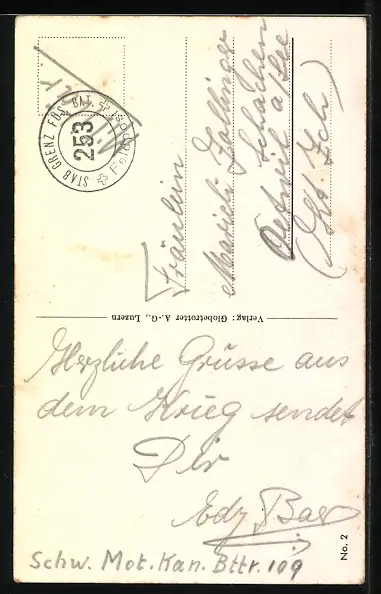 STAB GRENZ FÜS. BAT.
253
Feldpost
Fräulein
Marieli Zollinger
Schachen
Oetwil a/See
(Kt. Zch.)
Verlag: Globetrotter A.-G., Luzern
Herzliche Grüsse aus
dem Krieg sendet
Dir
Edy
Schw. Mot. Kan. Bttr. 109
No. 2